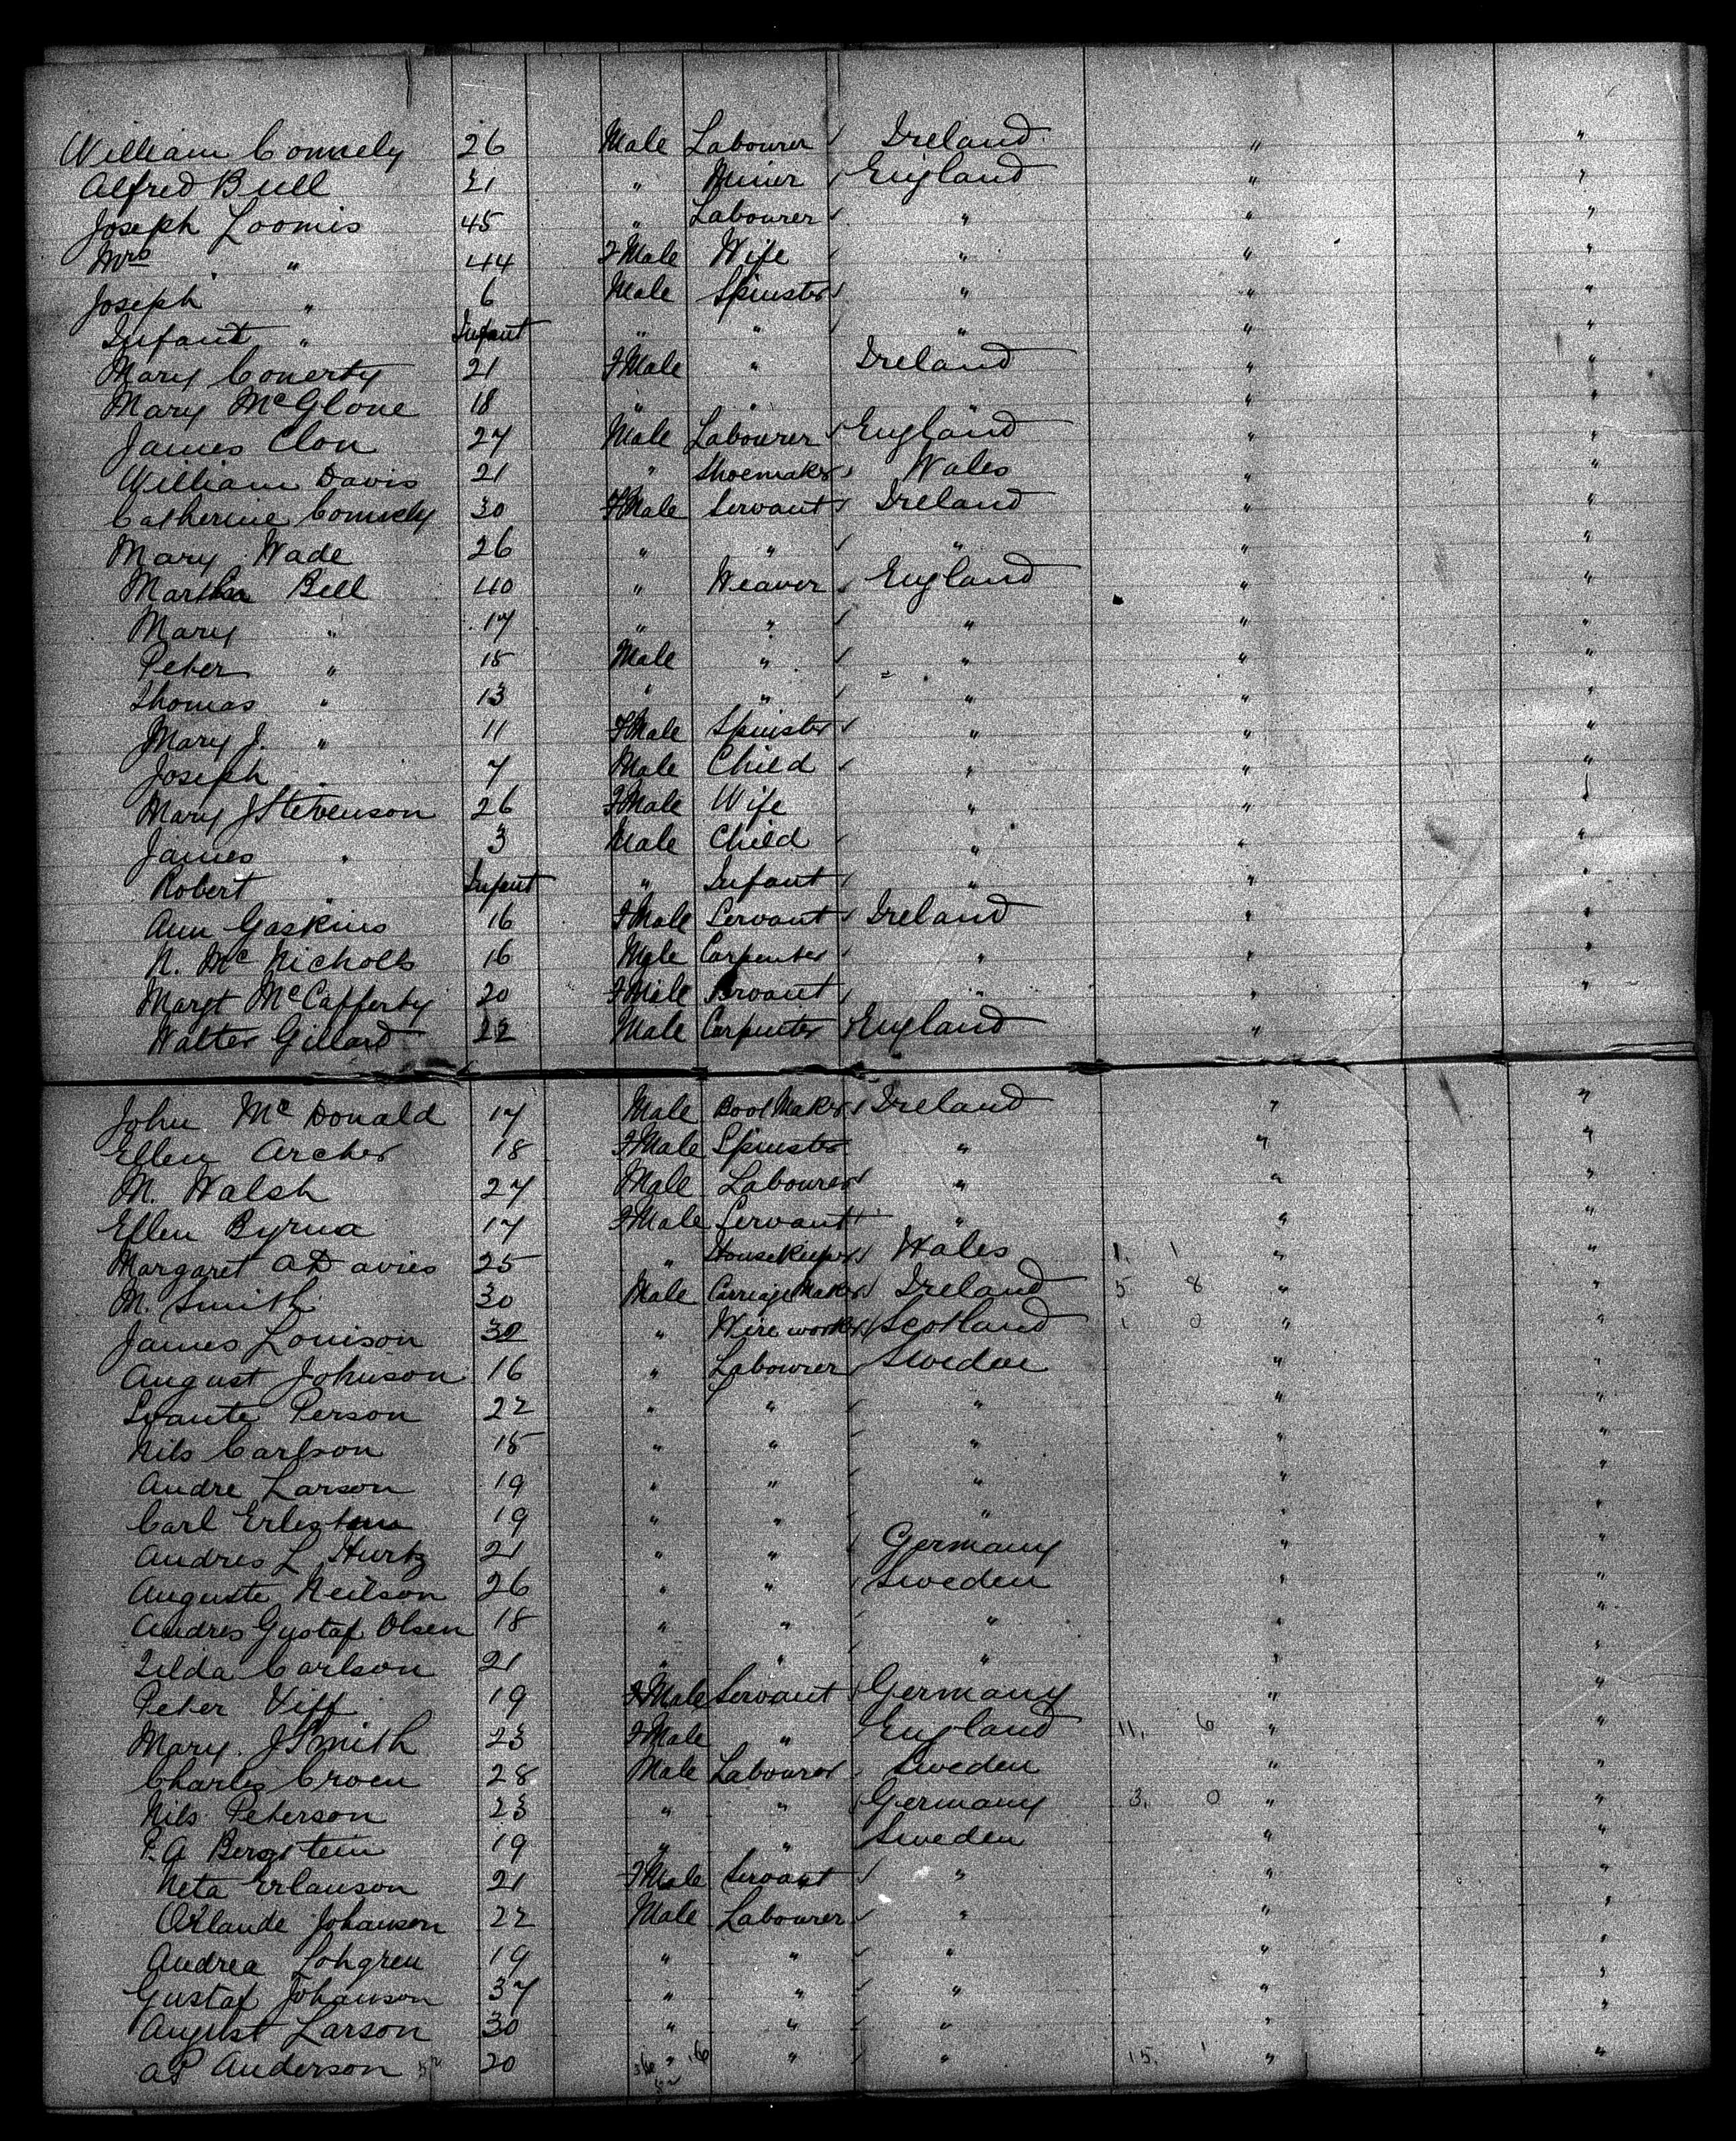 William Connely 26 Male Labourer Ireland " "
Alfred Bull 21 " Miner England " "
Joseph Loomis 45 " Labourer " " "
Mrs " 44 FMale Wife " " "
Joseph " 6 Male Spinster " " "
Infant " Infant " " " " "
Mary Conerty 21 FMale " Ireland " "
Mary McGlone 18 " " " " "
James Clon 27 Male Labourer England " "
William Davis 21 " Shoemaker Wales " "
Catherine Connely 30 FMale Servant Ireland " "
Mary Wade 26 " " " " "
Martha Bell 40 " Weaver England " "
Mary " 17 " " " " "
Peter " 15 Male " " " "
Thomas " 13 " " " " "
Mary J. " 11 FMale Spinster " " "
Joseph " 7 Male Child " " "
Mary J Stevenson 26 FMale Wife " " "
James " 3 Male Child " " "
Robert " Infant " Infant " " "
Ann Gaskins 16 FMale Servant Ireland " "
N. Mc Nicholls 16 Male Carpenter " " "
Margt McCafferty 20 FMale Servant " " "
Walter Gillard 22 Male Carpenter England "
John Mc Donald 17 Male Boot Maker Ireland " "
Ellen Archer 18 FMale Spinster " " "
M. Walsh 27 Male Labourer " " "
Ellen Byrna 17 FMale Servant " " "
Margaret A Davies 25 " Housekeeper Wales 1. 1 " "
M. Smith 30 Male Carriage Maker Ireland 5 8 " "
James Louison 30 " Wire worker Scotland 1 0 " "
August Johnson 16 " Labourer Sweden " "
Svante Person 22 " " " " "
Nils Carlson 15 " " " " "
Andre Larson 19 " " " " "
Carl 19 " " " " "
Andres L Hurtz 21 " " Germany " "
Auguste Neilson 26 " " Sweden " "
Andres Gustaf Olsen 18 " " " " "
Zilda Carlson 21 " " " " "
Peter Viff 19 FMale Servant Germany " "
Mary J Smith 23 FMale " England 11. 6 " "
Charles Croen 28 Male Labourer Sweden " "
Nils Peterson 23 " " Germany 3. 0 " "
P. A Bergstein 19 " " Sweden " "
Neta Erlauson 21 FMale Servant " " "
Orlande Johanson 22 Male Labourer " " "
Andrea Lohgren 19 " " " " "
Gustaf Johanson 37 " " " " "
August Larson 30 " " " " "
AP Anderson 20 " " " 15. 1 " "